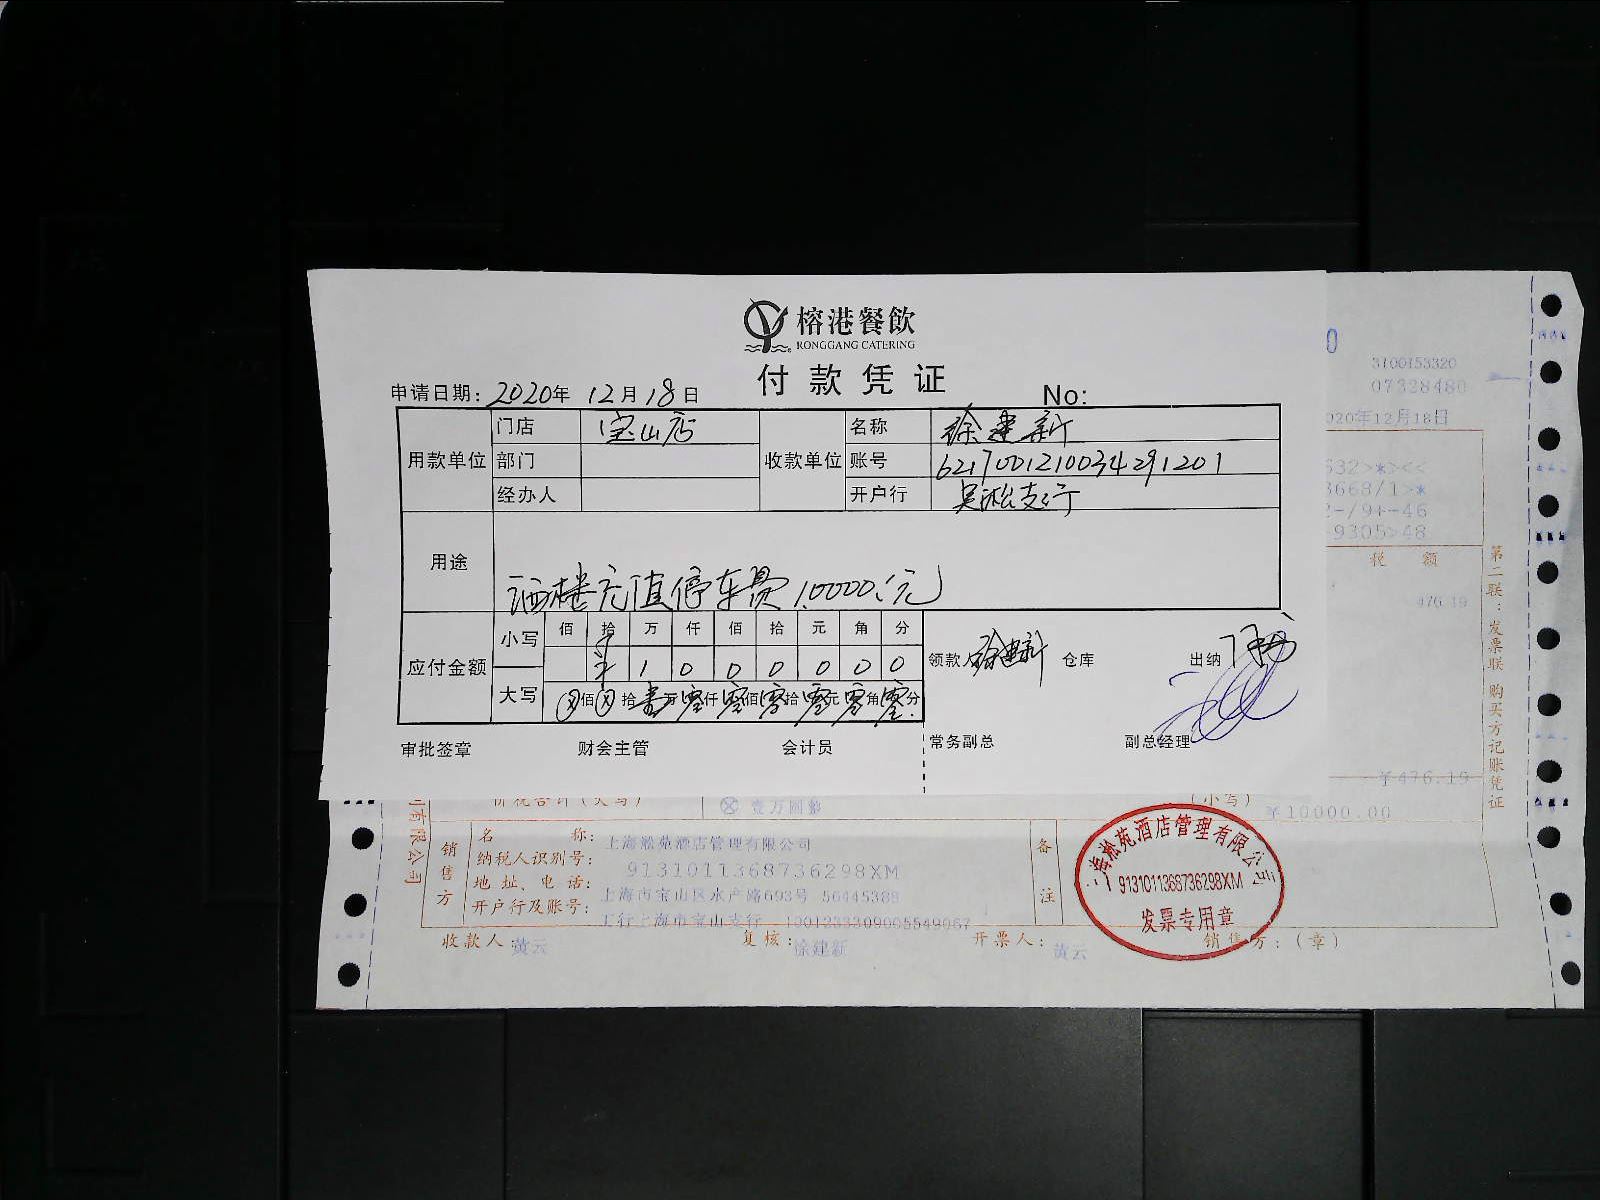 榕港餐飲
RONGGANG CATERING
付款凭证
申请日期: 2020年 12月18日 No:
用款单位 门店 宝山店 收款单位 名称 徐建新
部门 账号 6217001210034291201
经办人 开户行 吴淞支行
用途 酒楼充值停车费10000.元
应付金额 小写 佰 拾 万 仟 佰 拾 元 角 分
¥ 1 0 0 0 0 0 0
大写 ⊗佰⊗拾壹万零仟零佰零拾零元零角零分
领款 徐建新 仓库 出纳
审批签章 财会主管 会计员 常务副总 副总经理
3100153320
07328480
020年12月18日
632>*><<
3668/1>*
2-/94-46
9305>48
税 额
476.19
¥476.19
第二联:发票联 购买方记账凭证
价税合计(大写) ⊗ 壹万圆整 (小写) ¥10000.00
有限公司
销售方
名 称: 上海淞苑酒店管理有限公司
纳税人识别号: 9131011368736298XM
地 址、电 话: 上海市宝山区水产路693号 56445388
开户行及账号: 工行上海市宝山支行 1001233309005549067
备注
上海淞苑酒店管理有限公司
9131011368736298XM
发票专用章
收款人: 黄云 复核: 徐建新 开票人: 黄云 销售方:(章)